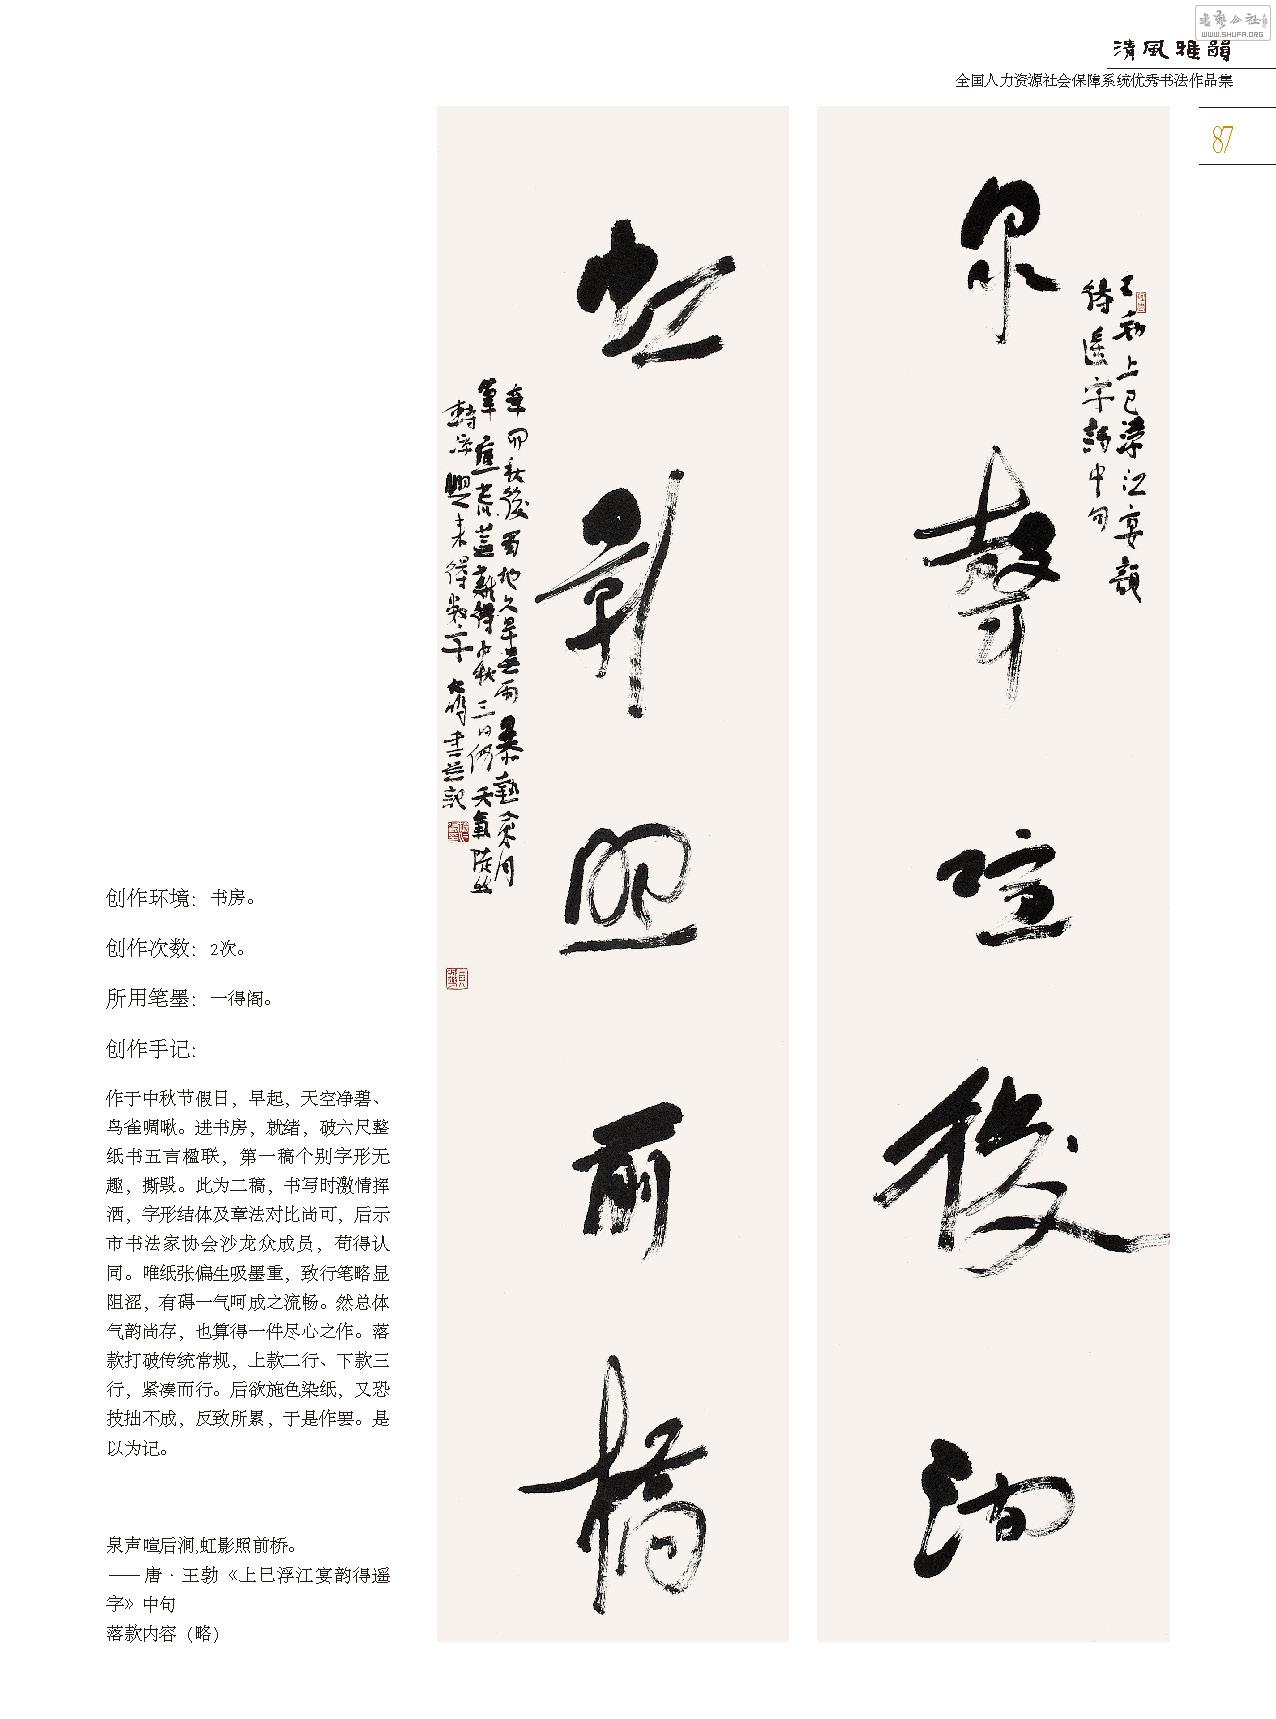 书艺公社
WWW.SHUFA.ORG
清風雅韻
全国人力资源社会保障系统优秀书法作品集
87
泉聲喧後澗
王勃上巳浮江宴韻
得遥字詩中句
虹影照前橋
辛卯秋後蜀地久旱無雨暴熱愈月
筆
轉凉興来得
書并記
创作环境：书房。
创作次数：2次。
所用笔墨：一得阁。
创作手记：
作于中秋节假日，早起，天空净碧、
鸟雀啁啾。进书房，就绪，破六尺整
纸书五言楹联，第一稿个别字形无
趣，撕毁。此为二稿，书写时激情挥
洒，字形结体及章法对比尚可，后示
市书法家协会沙龙众成员，苟得认
同。唯纸张偏生吸墨重，致行笔略显
阻涩，有碍一气呵成之流畅。然总体
气韵尚存，也算得一件尽心之作。落
款打破传统常规，上款二行、下款三
行，紧凑而行。后欲施色染纸，又恐
技拙不成，反致所累，于是作罢。是
以为记。
泉声喧后涧,虹影照前桥。
——唐·王勃《上巳浮江宴韵得遥
字》中句
落款内容（略）